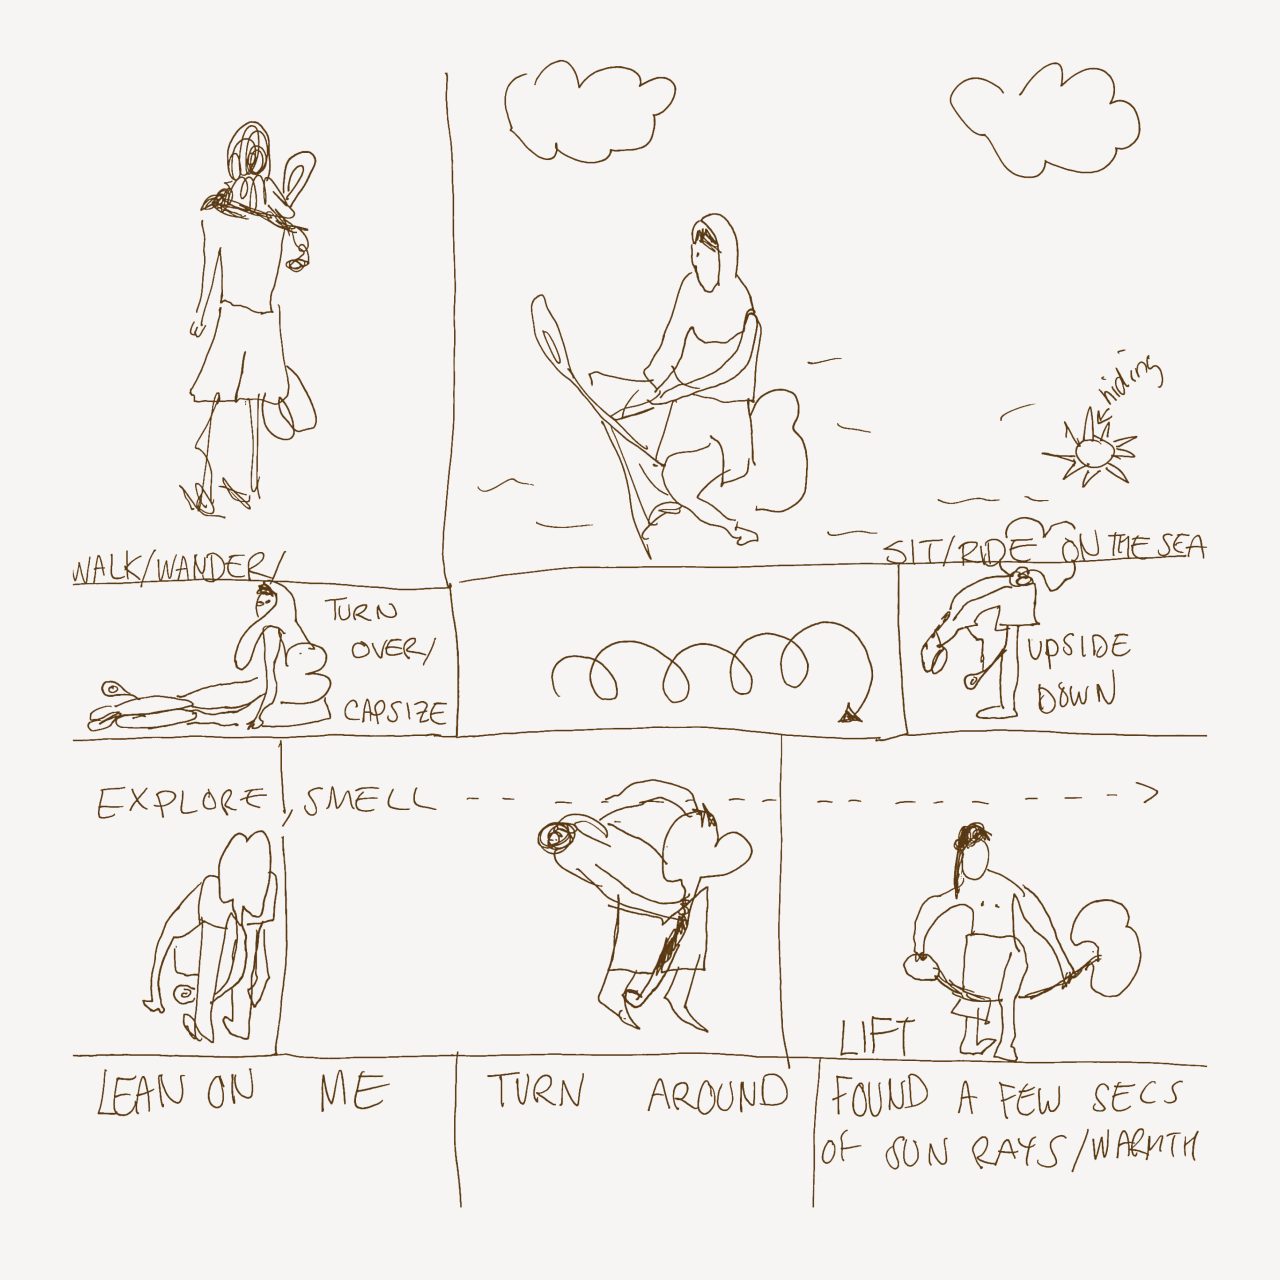 hiding
WALK/WANDER/
SIT/RIDE ON THE SEA
TURN
OVER/
CAPSIZE
UPSIDE
DOWN
EXPLORE, SMELL
LIFT
LEAN ON ME
TURN AROUND
FOUND A FEW SECS
OF SUN RAYS/WARMTH